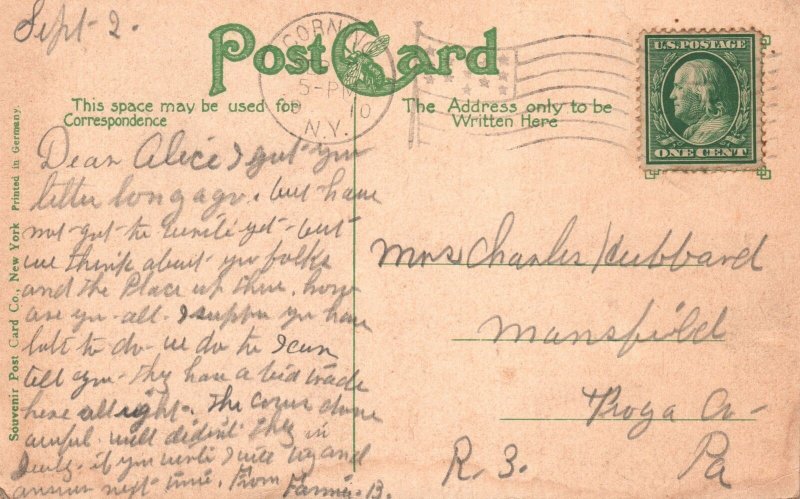 Sept 2.
Post Card
CORNING
5-PM
10
N.Y.
U.S. POSTAGE
ONE CENT
This space may be used for
Correspondence
The Address only to be
Written Here
Dear Alice I got you
letter long ago. but have
not got to write yet but
we think about you folks
and the Place up there. how
are you all. I suppose you have
lots to do we do to I can
tell you they have a bid trade
here allright. The corn done
awful well didnt they in
if you write I will try and
answer next time. From Fannie B.
Mrs Charles Hubbard
Mansfield
Tioga Co
R. 3. Pa
Souvenir Post Card Co., New York Printed in Germany.